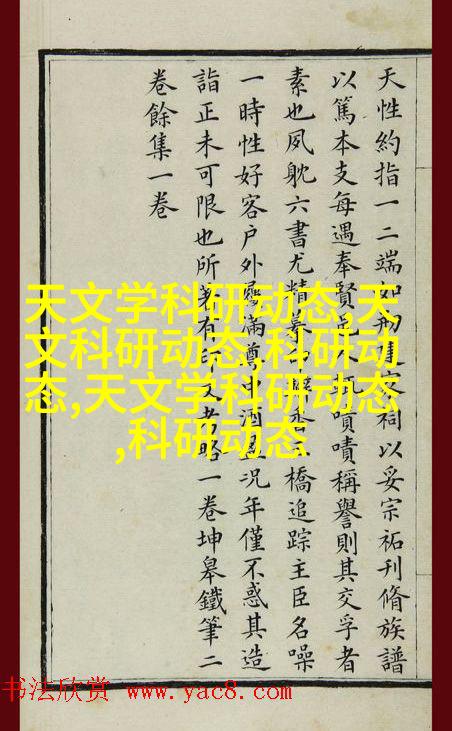 天性約指一二端如建祠以妥宗祏刊脩族譜
以篤本支每遇奉賢邑人輒嘖嘖稱譽則其交孚者
素也夙躭六書尤精篆橋追踪主臣名噪
一時性好客户外屨滿尊中酒盈況年僅不惑其造
詣正未可限也所著有印文考略一卷坤皋鐵筆二
卷餘集一卷
天文学科研动态,天
文科研动态,科研动
态,天文学科研动态
,科研动态
书法欣赏 www.yac8.com